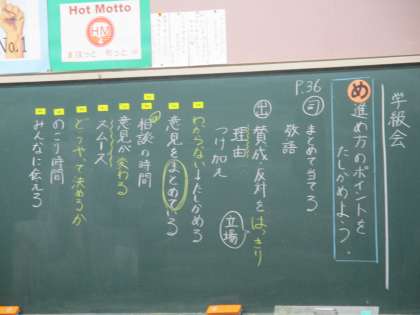 Hot Motto
HM
まほっと もっと
No.1
学級会
め 進め方のポイントを
たしかめよう。
P.36
司 まとめて当てる
敬語
出 賛成・反対をはっきり
立場
理由
つけ加え
わからない→たしかめる
意見をまとめている
相談の時間
意見が変わる
スムーズ
どうやって決めるか
のこり時間
みんなに伝える